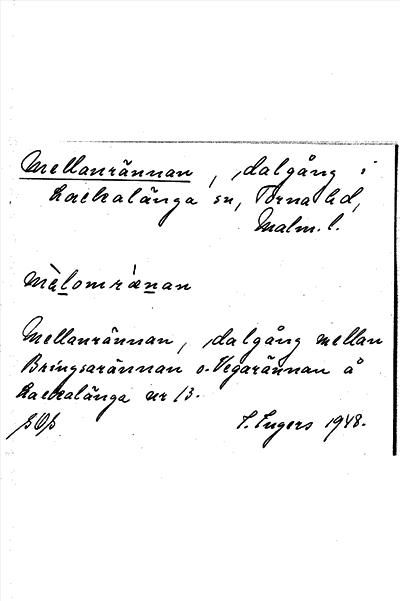 Mellanrännan, dalgång i
Lackalänga sn, Torna hd,
Malm. l.
mèlomrænan
Mellanrännan, dalgång mellan
Bringsarännan o. Vegarännan å
Lackalänga nr 13.
I. Ingers 1948.